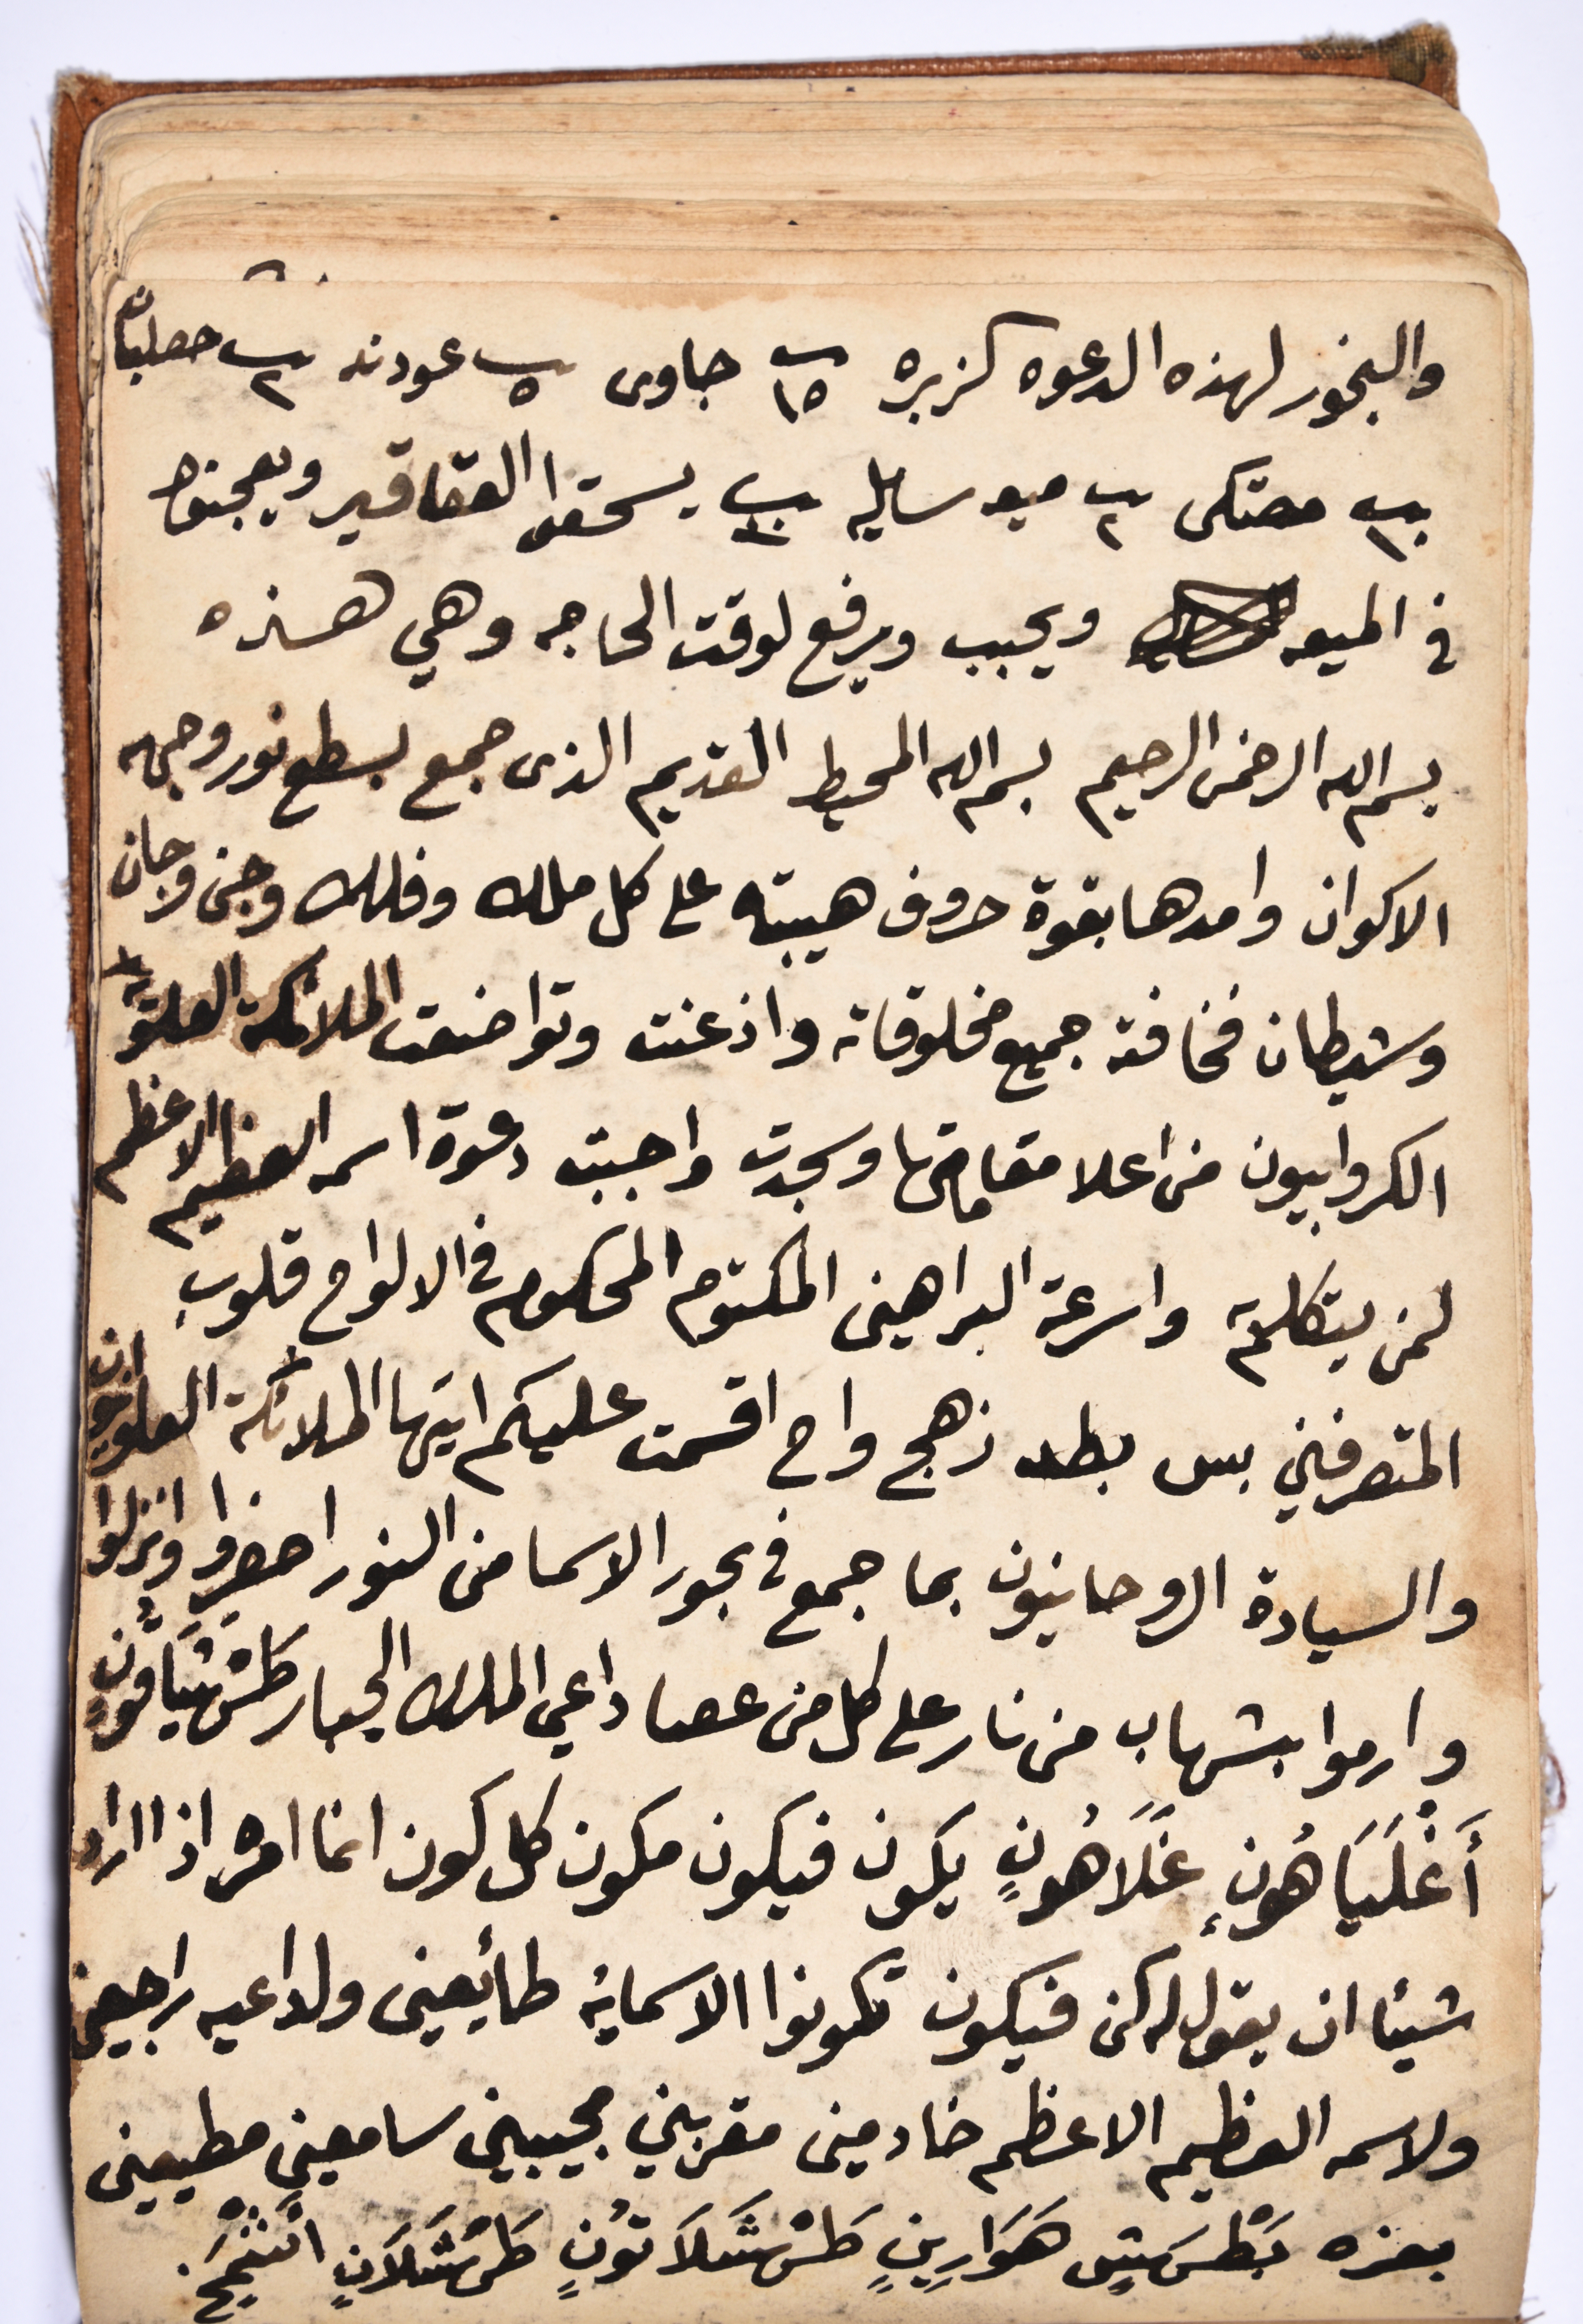 والبخور لهذه الدعوه كزبره ١٥ جاوى ٥ عود ند ٢ حصلبان
١ مصتكى ٢ ميعه سايله يسحقوا العقاقير ويعجنوا
في الميعه ويحبب ويرفع لوقت الحاجه وهي هذه
بسم الله الرحمن الرحيم بسم الله المحيط القديم الذى جمع بسطع نور وجهه
الاكوان وامدها بقوة حروف هيبته على كل ملك وفلك وجن وجان
وشيطان فخافته جميع مخلوقاته واذعنت وتواضعت الملائكة العلويه
الكروابيون من اعلا مقاماتها وسجدت واجبته دعوة اسمه العظيم الاعظم
لمن يتكلم واسرعة البراهين المكتوم المحكوم في الالواح قلوب
المتصرفين بس بطد زهج واح اقسمت عليكم ايتها الملائكة العلويون
والسيادة الروحانيون بما جمع في بحور الاسما من النور احضروا وانزلوا
وارموا بشهاب من نار على كل من عصا داعي الملك الجبار
أَغْلَيَاهُونٍ غَلَاهُونٍ يكون فيكون مكون كل كون انما امره اذا اراد
شيئا ان يقول له كن فيكون تكونوا الاسمايه طائعين ولداعيه راجعين
ولاسمه العظيم الاعظم خادمين مقربين مجيبين سامعين مطيعين
بعزه هَوَارِينٍ